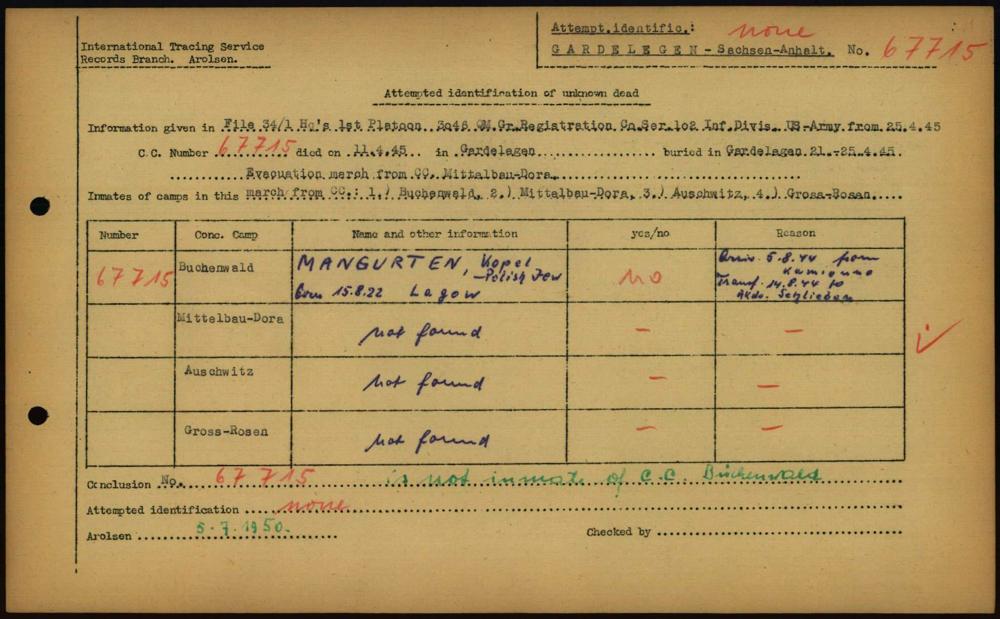 Attempt.identific.: none
International Tracing Service
Records Branch. Arolsen.
GARDELEGEN - Sachsen-Anhalt. No. 67715
Attempted identification of unknown dead
Information given in File 34/1 Hq's 1st Platoon 3046 QM.Gr.Registration Co.Ser.102 Inf.Divis. US-Army from 25.4.45
C.C. Number 67715 died on 11.4.45 in Gardelegen buried in Gardelegen 21.-25.4.45.
Evacuation march from CC. Mittelbau-Dora.
Inmates of camps in this march from CC.: 1.) Buchenwald, 2.) Mittelbau-Dora, 3.) Auschwitz, 4.) Gross-Rosen.
Number Conc. Camp Name and other information yes/no Reason
67715 Buchenwald MANGURTEN, Kopel no Arriv. 5.8.44 from
- Polish Jew
Born 15.8.22 Lagow Transf. 14.8.44 to
Akdo. Schlieben
Mittelbau-Dora not found - -
Auschwitz not found - -
Gross-Rosen not found - -
Conclusion No. 67715 is not inmate of C.C. Buchenwald
Attempted identification none
Arolsen 5.7.1950. Checked by